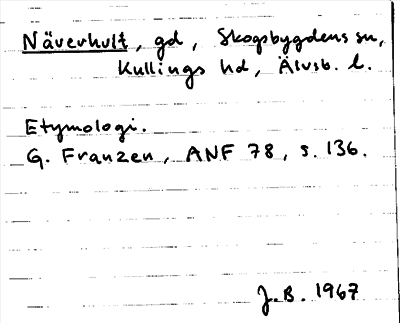 Näverhult, gd, Skogsbygdens sn,
Kullings hd, Älvsb. l.
Etymologi.
G. Franzen, ANF 78, s. 136.
J.B. 1967